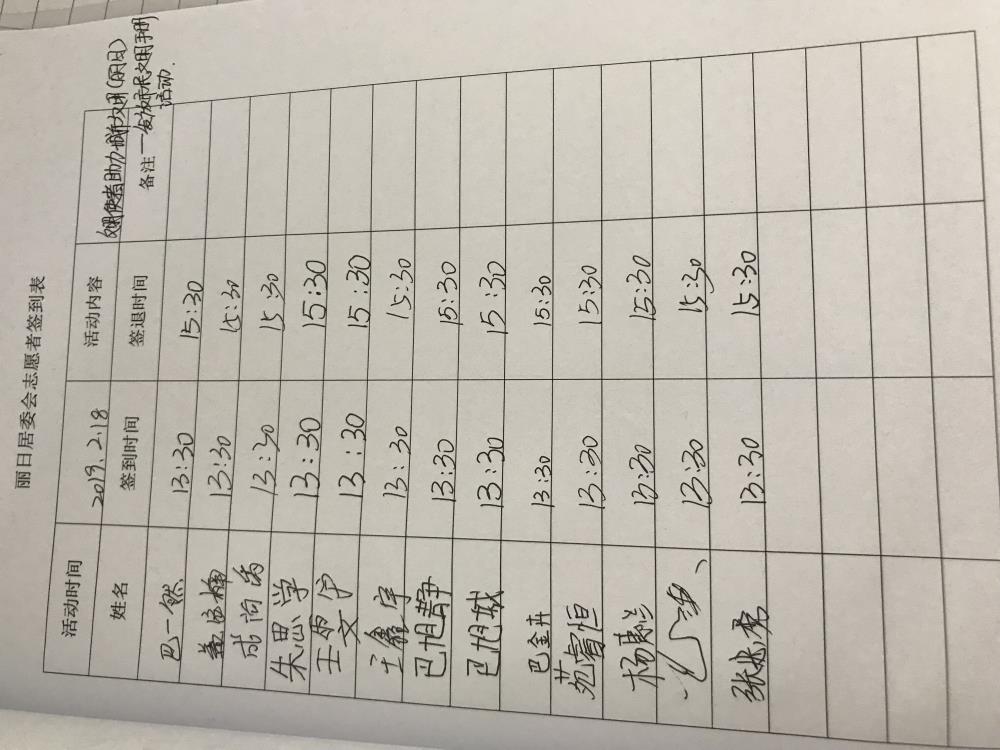 丽日居委会志愿者签到表
活动时间 2019.2.18 活动内容 文明使者助力城市文明(丽日)
姓名 签到时间 签退时间 备注 一发放市民文明手册
活动.
巴一然 13:30 15:30
13:30 15:30
成尚 13:30 15:30
朱思学 13:30 15:30
王雨文 13:30 15:30
王鑫宇 13:30 15:30
巴旭静 13:30 15:30
巴旭 13:30 15:30
巴金卉 13:30 15:30
范睿恒 13:30 15:30
杨 13:30 15:30
13:30 15:30
张 13:30 15:30